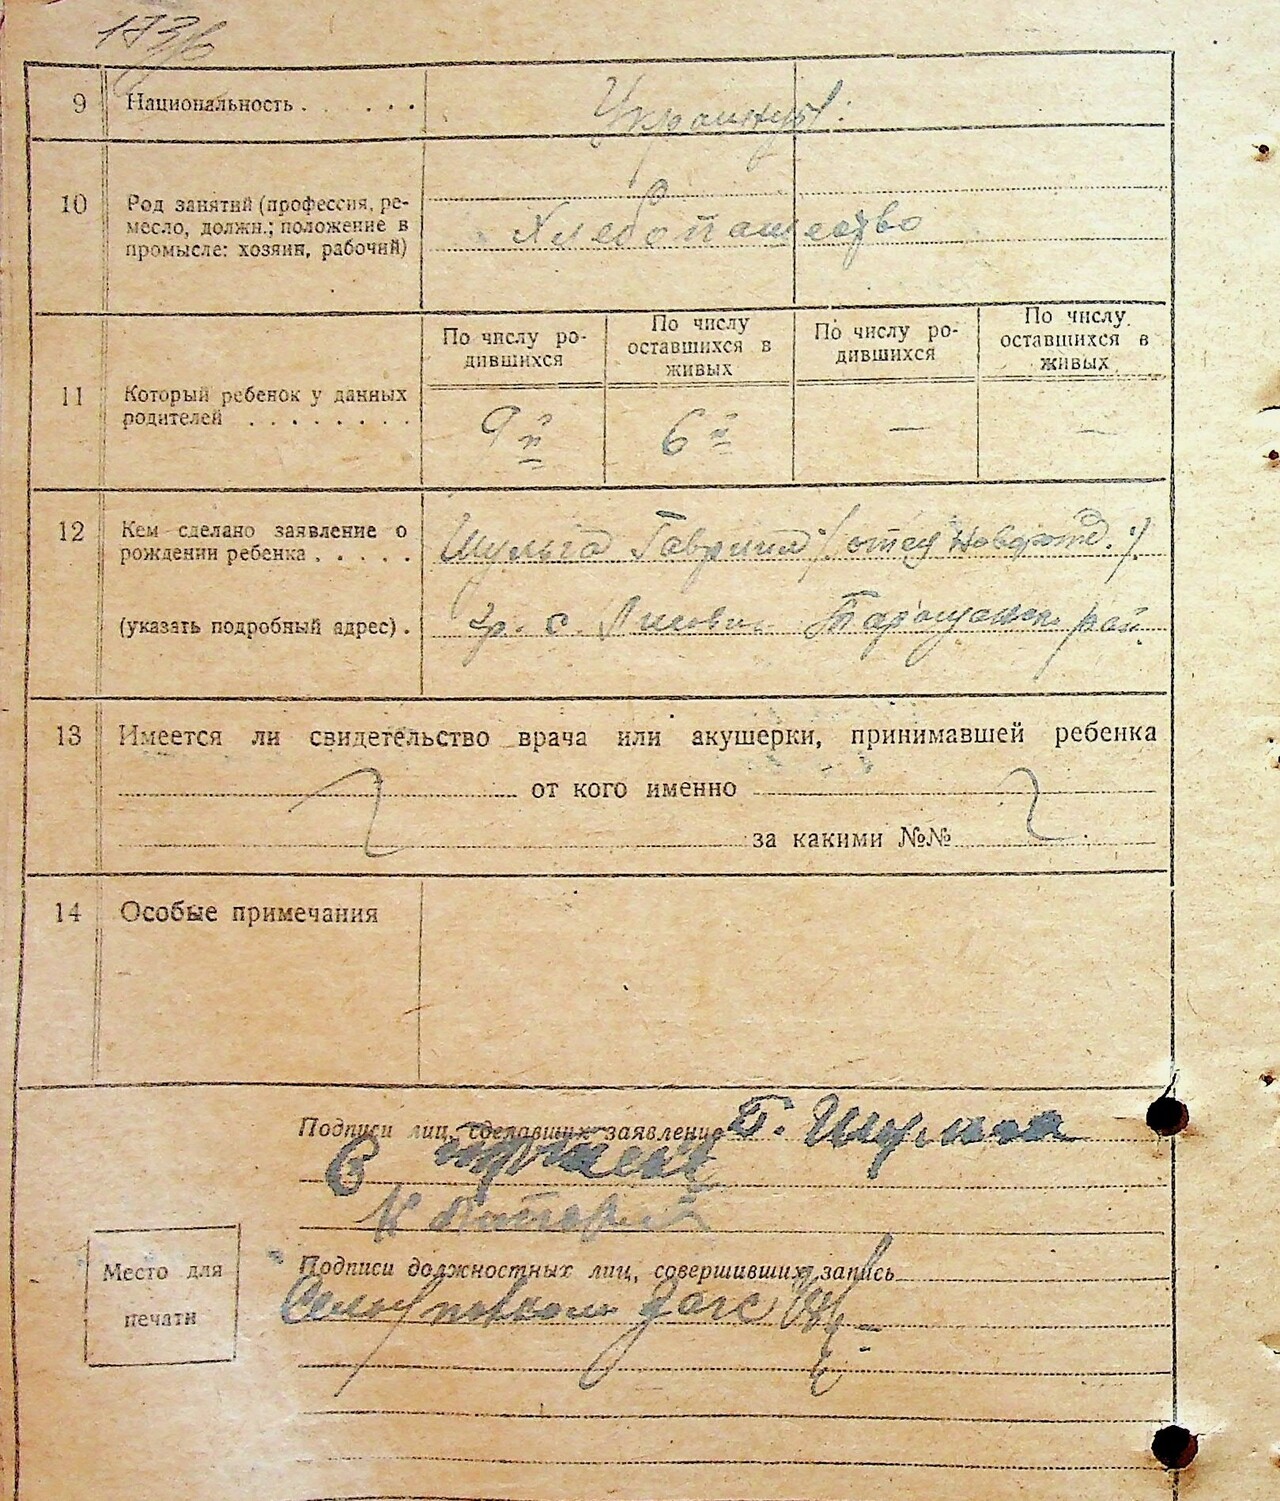 9 Национальность . . . . . . Украинцы.
10 Род занятий (профессия, ре-
месло, должн.; положение в
промысле: хозяин, рабочий)
Хлебопашество
По числу ро-
дившихся
По числу
оставшихся в
живых
По числу ро-
дившихся
По числу
оставшихся в
живых
11 Который ребенок у данных
родителей . . . . . . . .
9й 6й — —
12 Кем сделано заявление о
рождении ребенка . . . . .
Шульга Гавриил /отец новорожд./
(указать подробный адрес) .
гр. с. Таращанск. рай.
13 Имеется ли свидетельство врача или акушерки, принимавшей ребенка
от кого именно
за какими №№
14 Особые примечания
Подписи лиц, сделавших заявление Г. Шульга
Место для
печати
Подписи должностных лиц, совершивших запись
загс